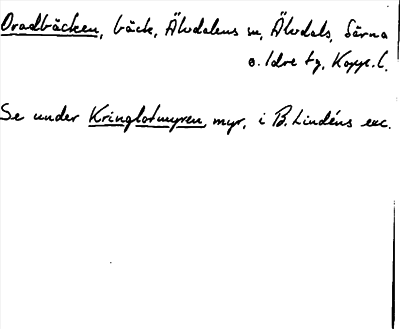 Oradbäcken, bäck, Älvdalens sn, Älvdals, Särna
o. Idre tg, Kopp. l.
Se under Kringlotmyren, myr, i B. Lindéns exc.